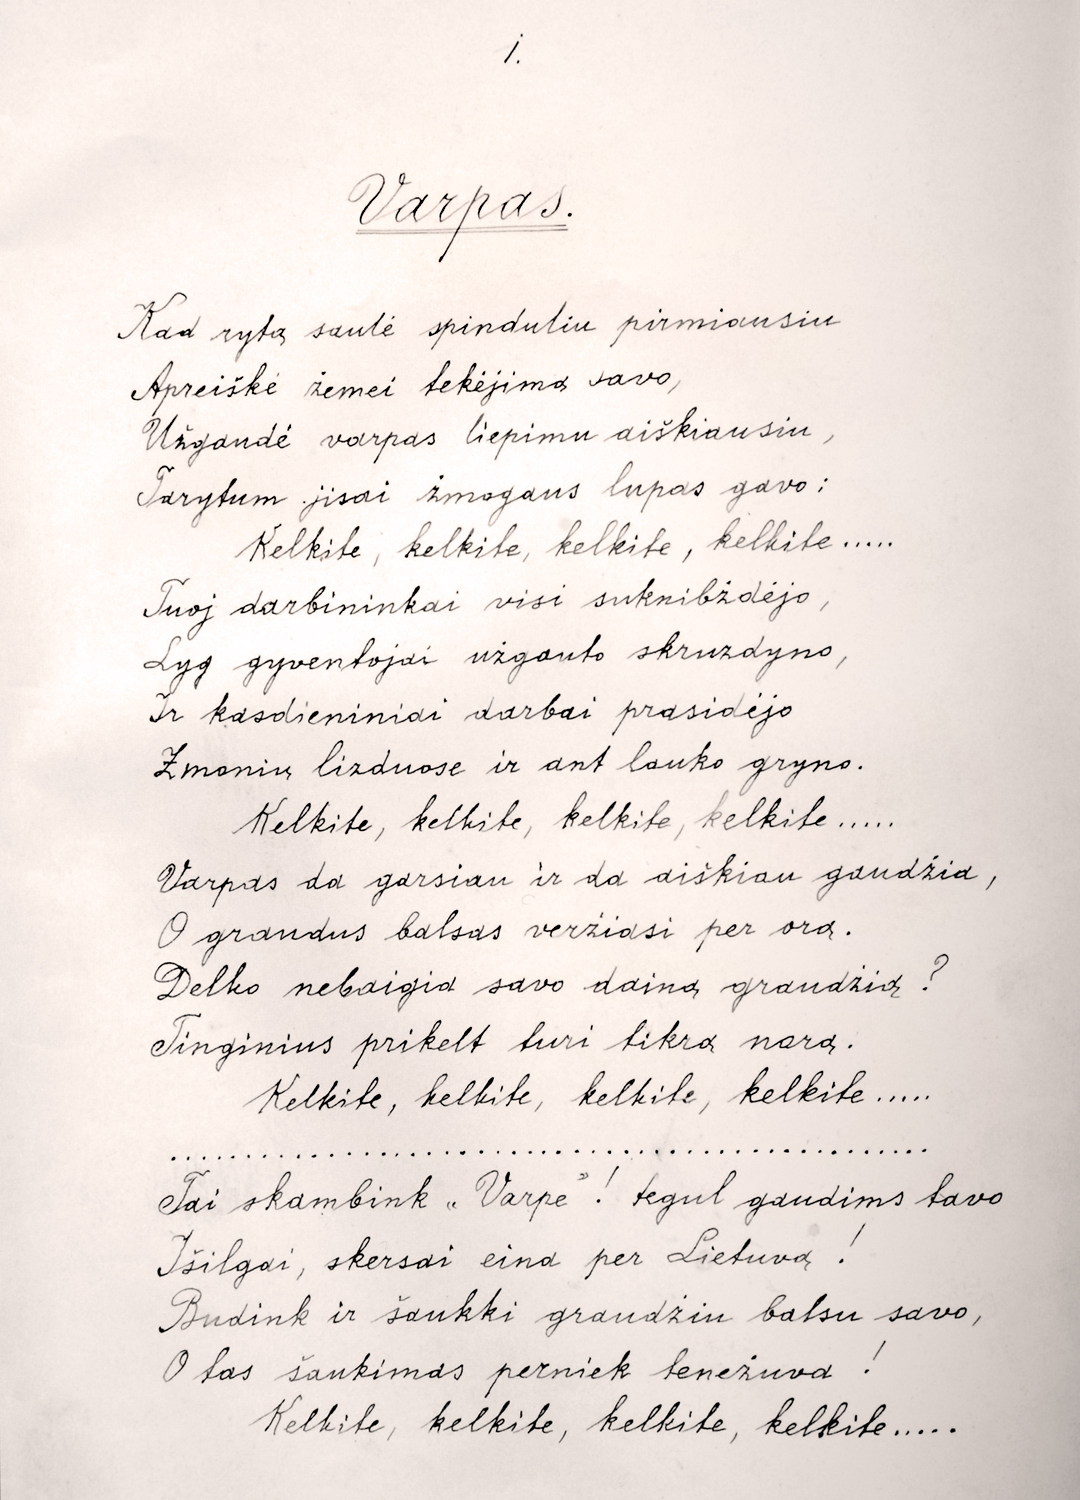 1.
Varpas.
Kad rytą saulė spinduliu pirmiausiu
Apreiškė žemei tekėjimą savo,
Užgaudė varpas liepimu aiškiausiu,
Tarytum jisai žmogaus lupas gavo:
Kelkite, kelkite, kelkite, kelkite.....
Tuoj darbininkai visi suknibždėjo,
Lyg gyventojai užgauto skruzdyno,
Ir kasdieniniai darbai prasidėjo
Žmonių lizduose ir ant lauko gryno.
Kelkite, kelkite, kelkite, kelkite.....
Varpas da garsiau ir da aiškiau gaudžia,
O graudus balsas veržiasi per orą.
Delko nebaigia savo dainą graudžią?
Tinginius prikelt turi tikrą norą.
Kelkite, kelkite, kelkite, kelkite.....
..................................................
Tai skambink „Varpe”! tegul gaudims tavo
Išilgai, skersai eina per Lietuvą!
Budink ir šaukki graudžiu balsu savo,
O tas šaukimas perniek tenežuva!
Kelkite, kelkite, kelkite, kelkite.....